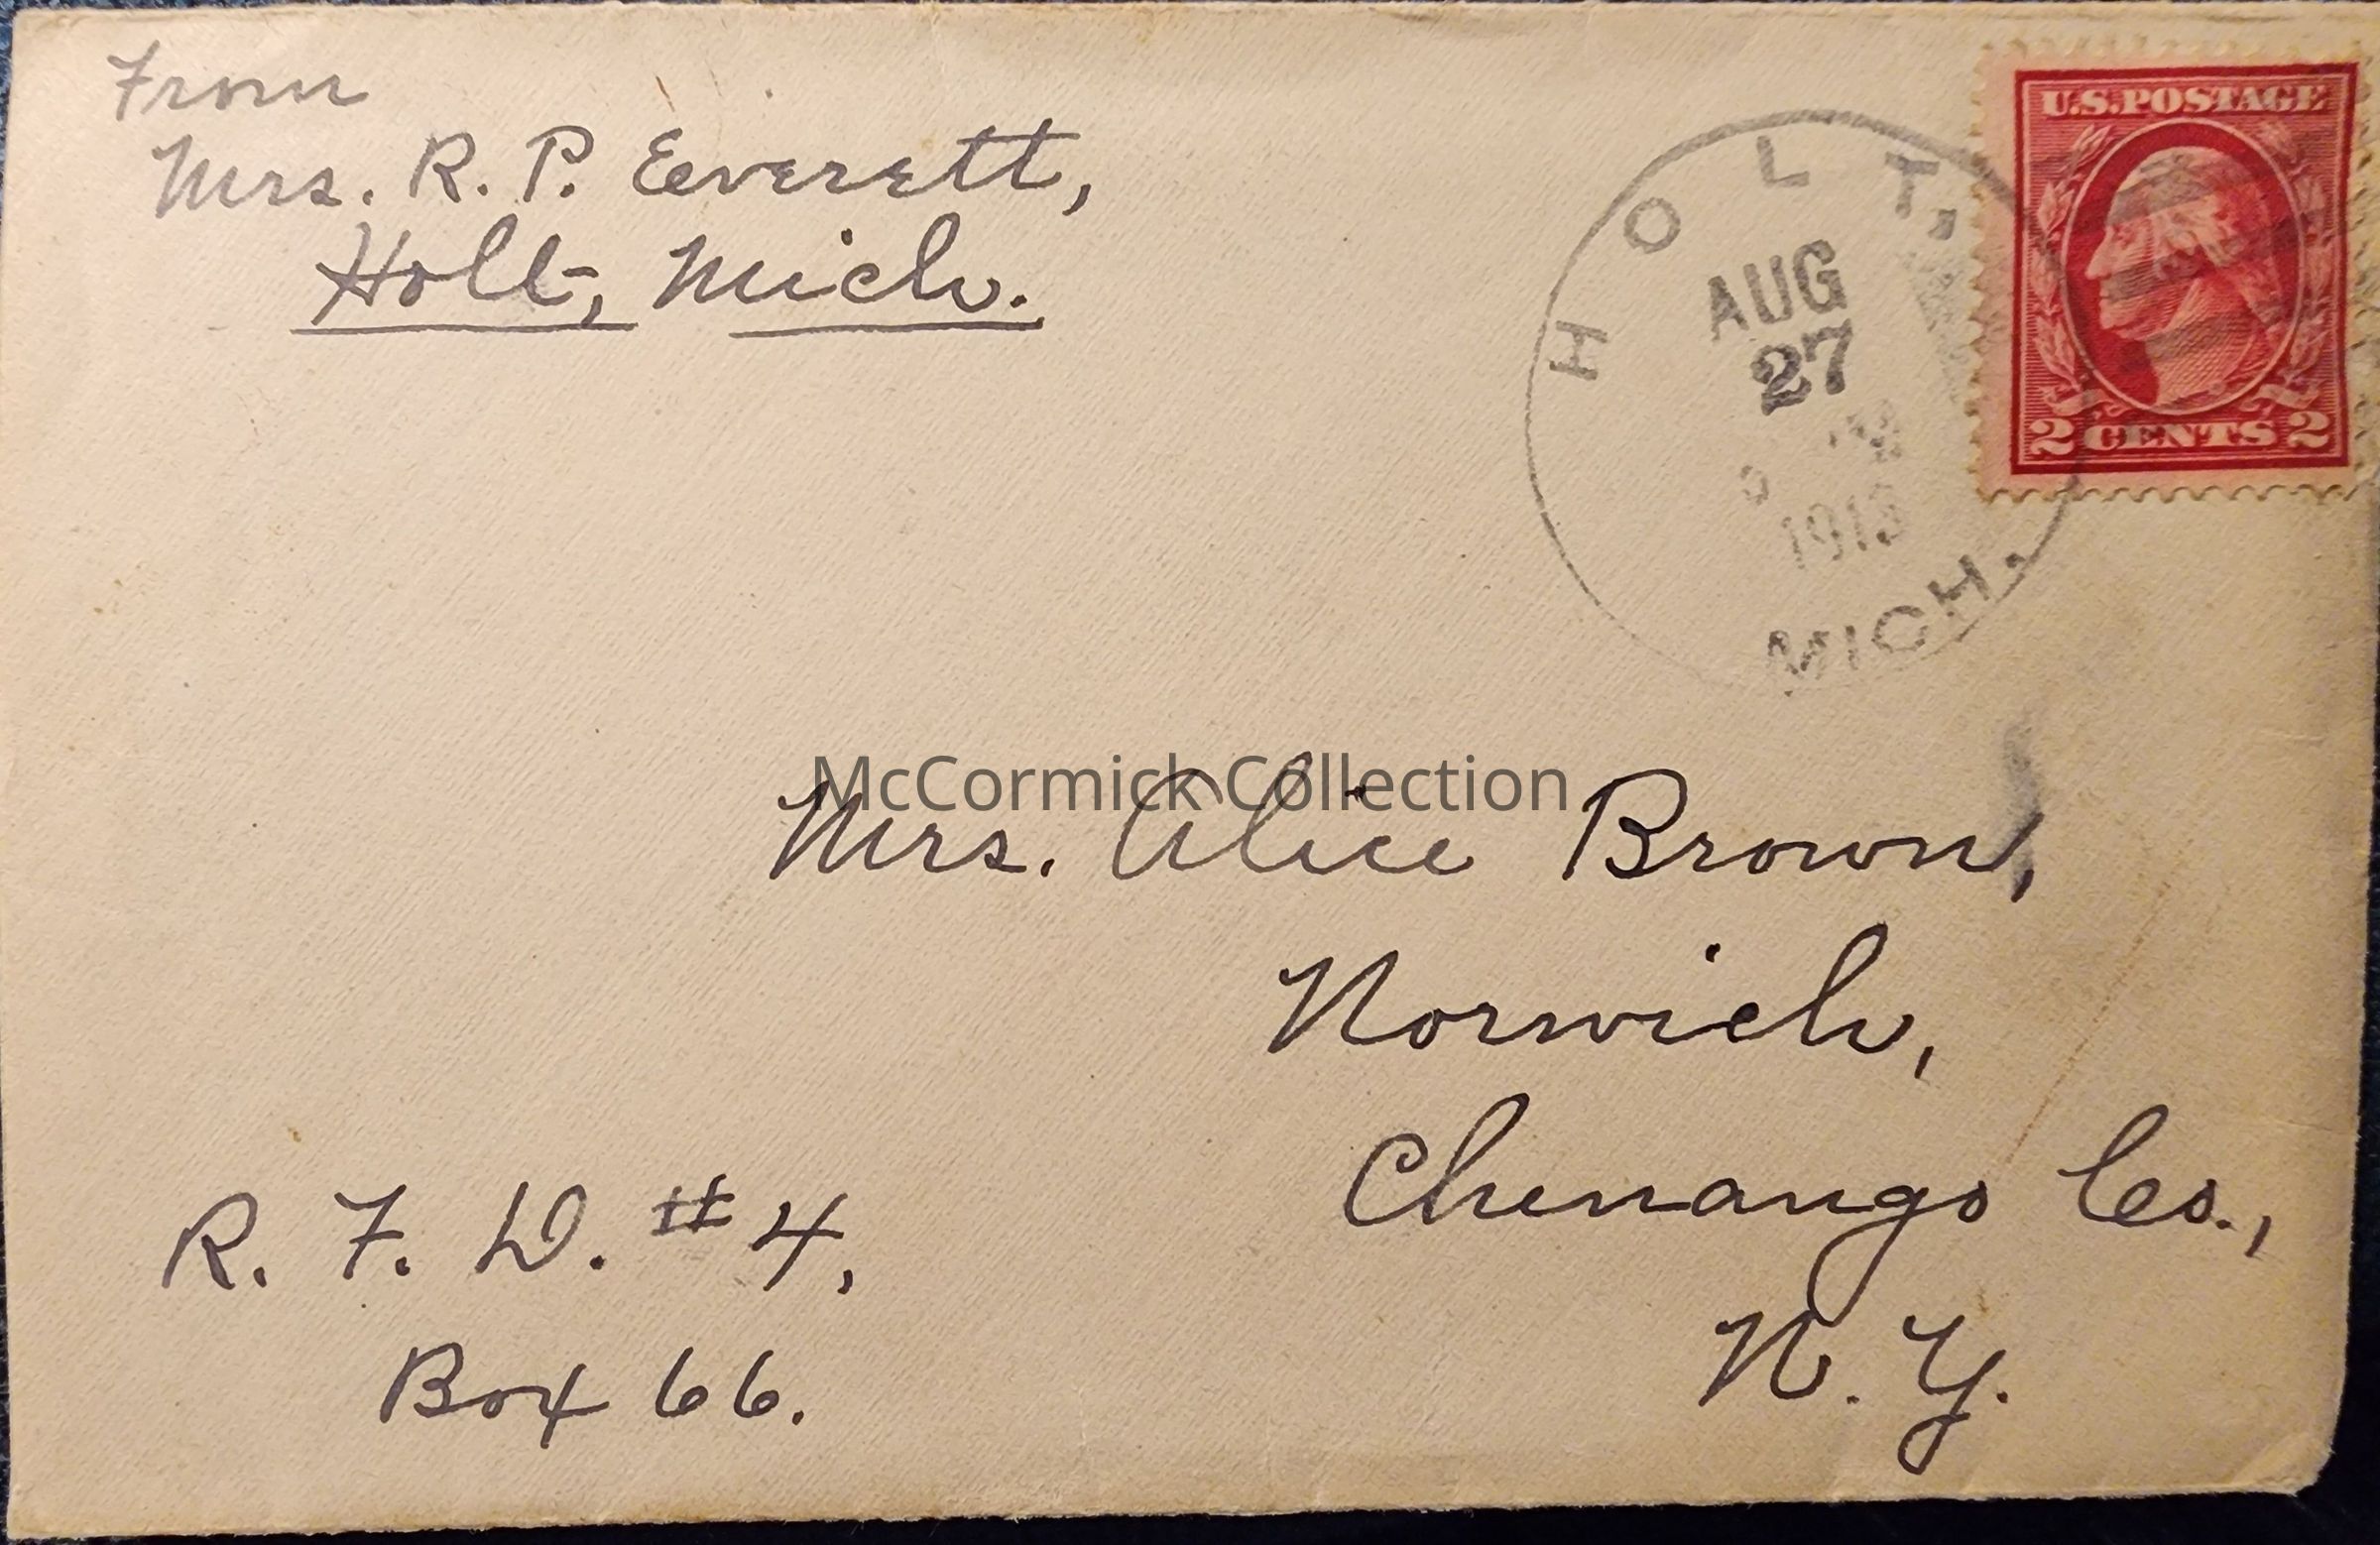 From
Mrs. R. P. Everett,
Holt, Mich.
U.S. POSTAGE
2 CENTS 2
HOLT,
AUG
27
M
1913
MICH.
McCormick Collection
Mrs. Alice Brown,
Norwich,
Chenango Co.,
N. Y.
R. F. D. #4,
Box 66.